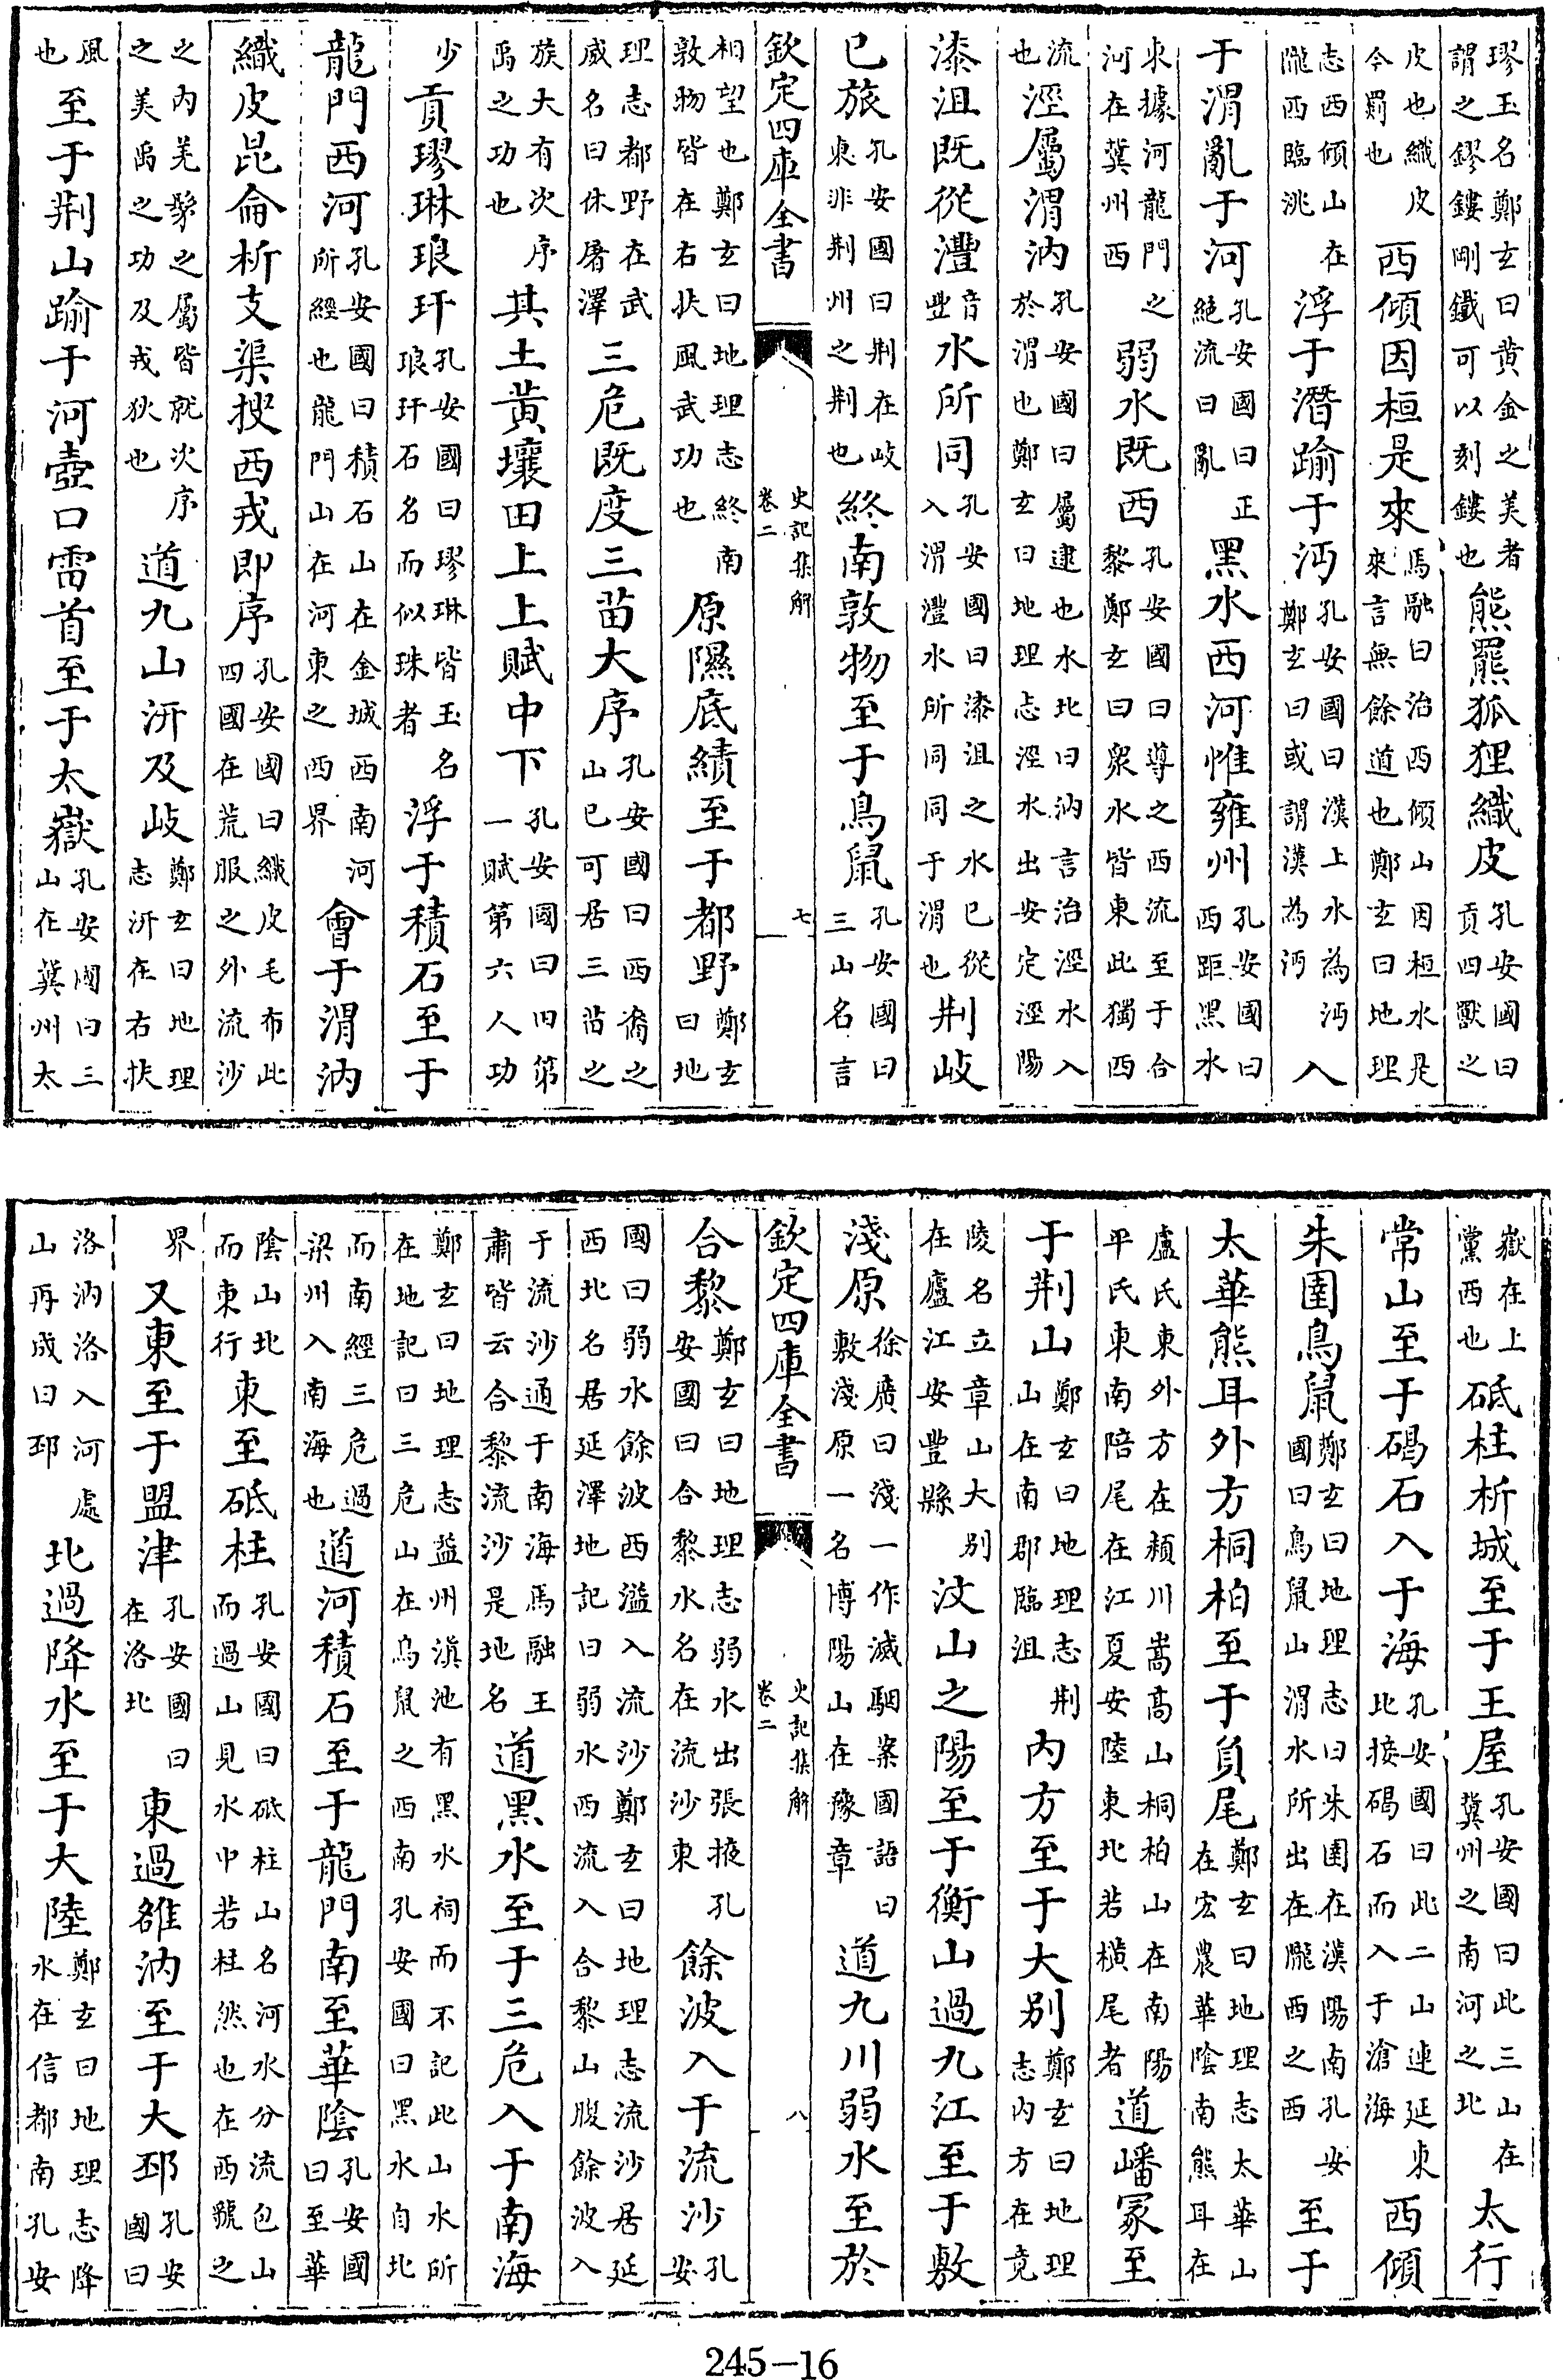 璆玉名鄭玄曰黄金之美者謂之鏐鏤剛鐵可以刻鏤也熊羆狐狸織皮孔安國曰貢四獸之
皮也織皮今罽也西傾因桓是來馬融曰治西傾山因桓水是來言無餘道也鄭玄曰地理
志西傾山在隴西臨洮浮于潛踰于沔孔安國曰漢上水為沔鄭玄曰或謂漢為沔入
于渭亂于河孔安國曰正絶流曰亂黑水西河惟雍州孔安國曰西距黑水
東據河龍門之河在冀州西弱水既西孔安國曰導之西流至于合黎鄭玄曰衆水皆東此獨西
流也涇屬渭汭孔安國曰屬逮也水北曰汭言治涇水入於渭也鄭玄曰地理志涇水出安定涇陽
漆沮既從灃音豐水所同孔安國曰漆沮之水已從入渭灃水所同同于渭也荆岐
已旅孔安國曰荆在岐東非荆州之荆也終南敦物至于鳥鼠孔安國曰三山名言
欽定四庫全書 史記集解 卷二 七
相望也鄭玄曰地理志終南敦物皆在右扶風武功也原隰底績至于都野鄭玄曰地
理志都野在武威名曰休屠澤三危既度三苗大序孔安國曰西裔之山已可居三苗之
族大有次序禹之功也其土黄壤田上上賦中下孔安國曰田第一賦第六人功
少貢璆琳琅玕孔安國曰璆琳皆玉名琅玕石名而似珠者浮于積石至于
龍門西河孔安國曰積石山在金城西南河所經也龍門山在河東之西界會于渭汭
織皮昆侖析支渠搜西戎即序孔安國曰織皮毛布此四國在荒服之外流沙
之内羌髳之屬皆就次序之美禹之功及戎狄也道九山汧及岐鄭玄曰地理志汧在右扶
風也至于荆山踰于河壺口雷首至于太嶽孔安國曰三山在冀州太
嶽在上黨西也砥柱析城至于王屋孔安國曰此三山在冀州之南河之北太行
常山至于碣石入于海孔安國曰此二山連延東北接碣石而入于滄海西傾
朱圉鳥鼠鄭玄曰地理志曰朱圉在漢陽南孔安國曰鳥鼠山渭水所出在隴西之西至于
太華熊耳外方桐柏至于負尾鄭玄曰地理志太華山在宏農華陰南熊耳在
盧氏東外方在潁川嵩高山桐柏山在南陽平氏東南陪尾在江夏安陸東北若橫尾者道嶓冢至
于荆山鄭玄曰地理志荆山在南郡臨沮内方至于大别鄭玄曰地理志内方在竟
陵名立章山大别在廬江安豐縣汶山之陽至于衡山過九江至于敷
淺原徐廣曰淺一作滅駰案國語曰敷淺原一名博陽山在豫章道九川弱水至於
欽定四庫全書 史記集解 卷二 八
合黎鄭玄曰地理志弱水出張掖孔安國曰合黎水名在流沙東餘波入于流沙孔安
國曰弱水餘波西溢入流沙鄭玄曰地理志流沙居延西北名居延澤地記曰弱水西流入合黎山腹餘波入
于流沙通于南海馬融王肅皆云合黎流沙是地名道黑水至于三危入于南海
鄭玄曰地理志益州滇池有黑水祠而不記此山水所在地記曰三危山在鳥鼠之西南孔安國曰黑水自北
而南經三危過梁州入南海也道河積石至于龍門南至華陰孔安國曰至華
陰山北而東行東至砥柱孔安國曰砥柱山名河水分流包山而過山見水中若柱然也在西虢之
界又東至于盟津孔安國曰在洛北東過雒汭至于大邳孔安國曰
洛汭洛入河處山再成曰邳北過降水至于大陸鄭玄曰地理志降水在信都南孔安
245-16